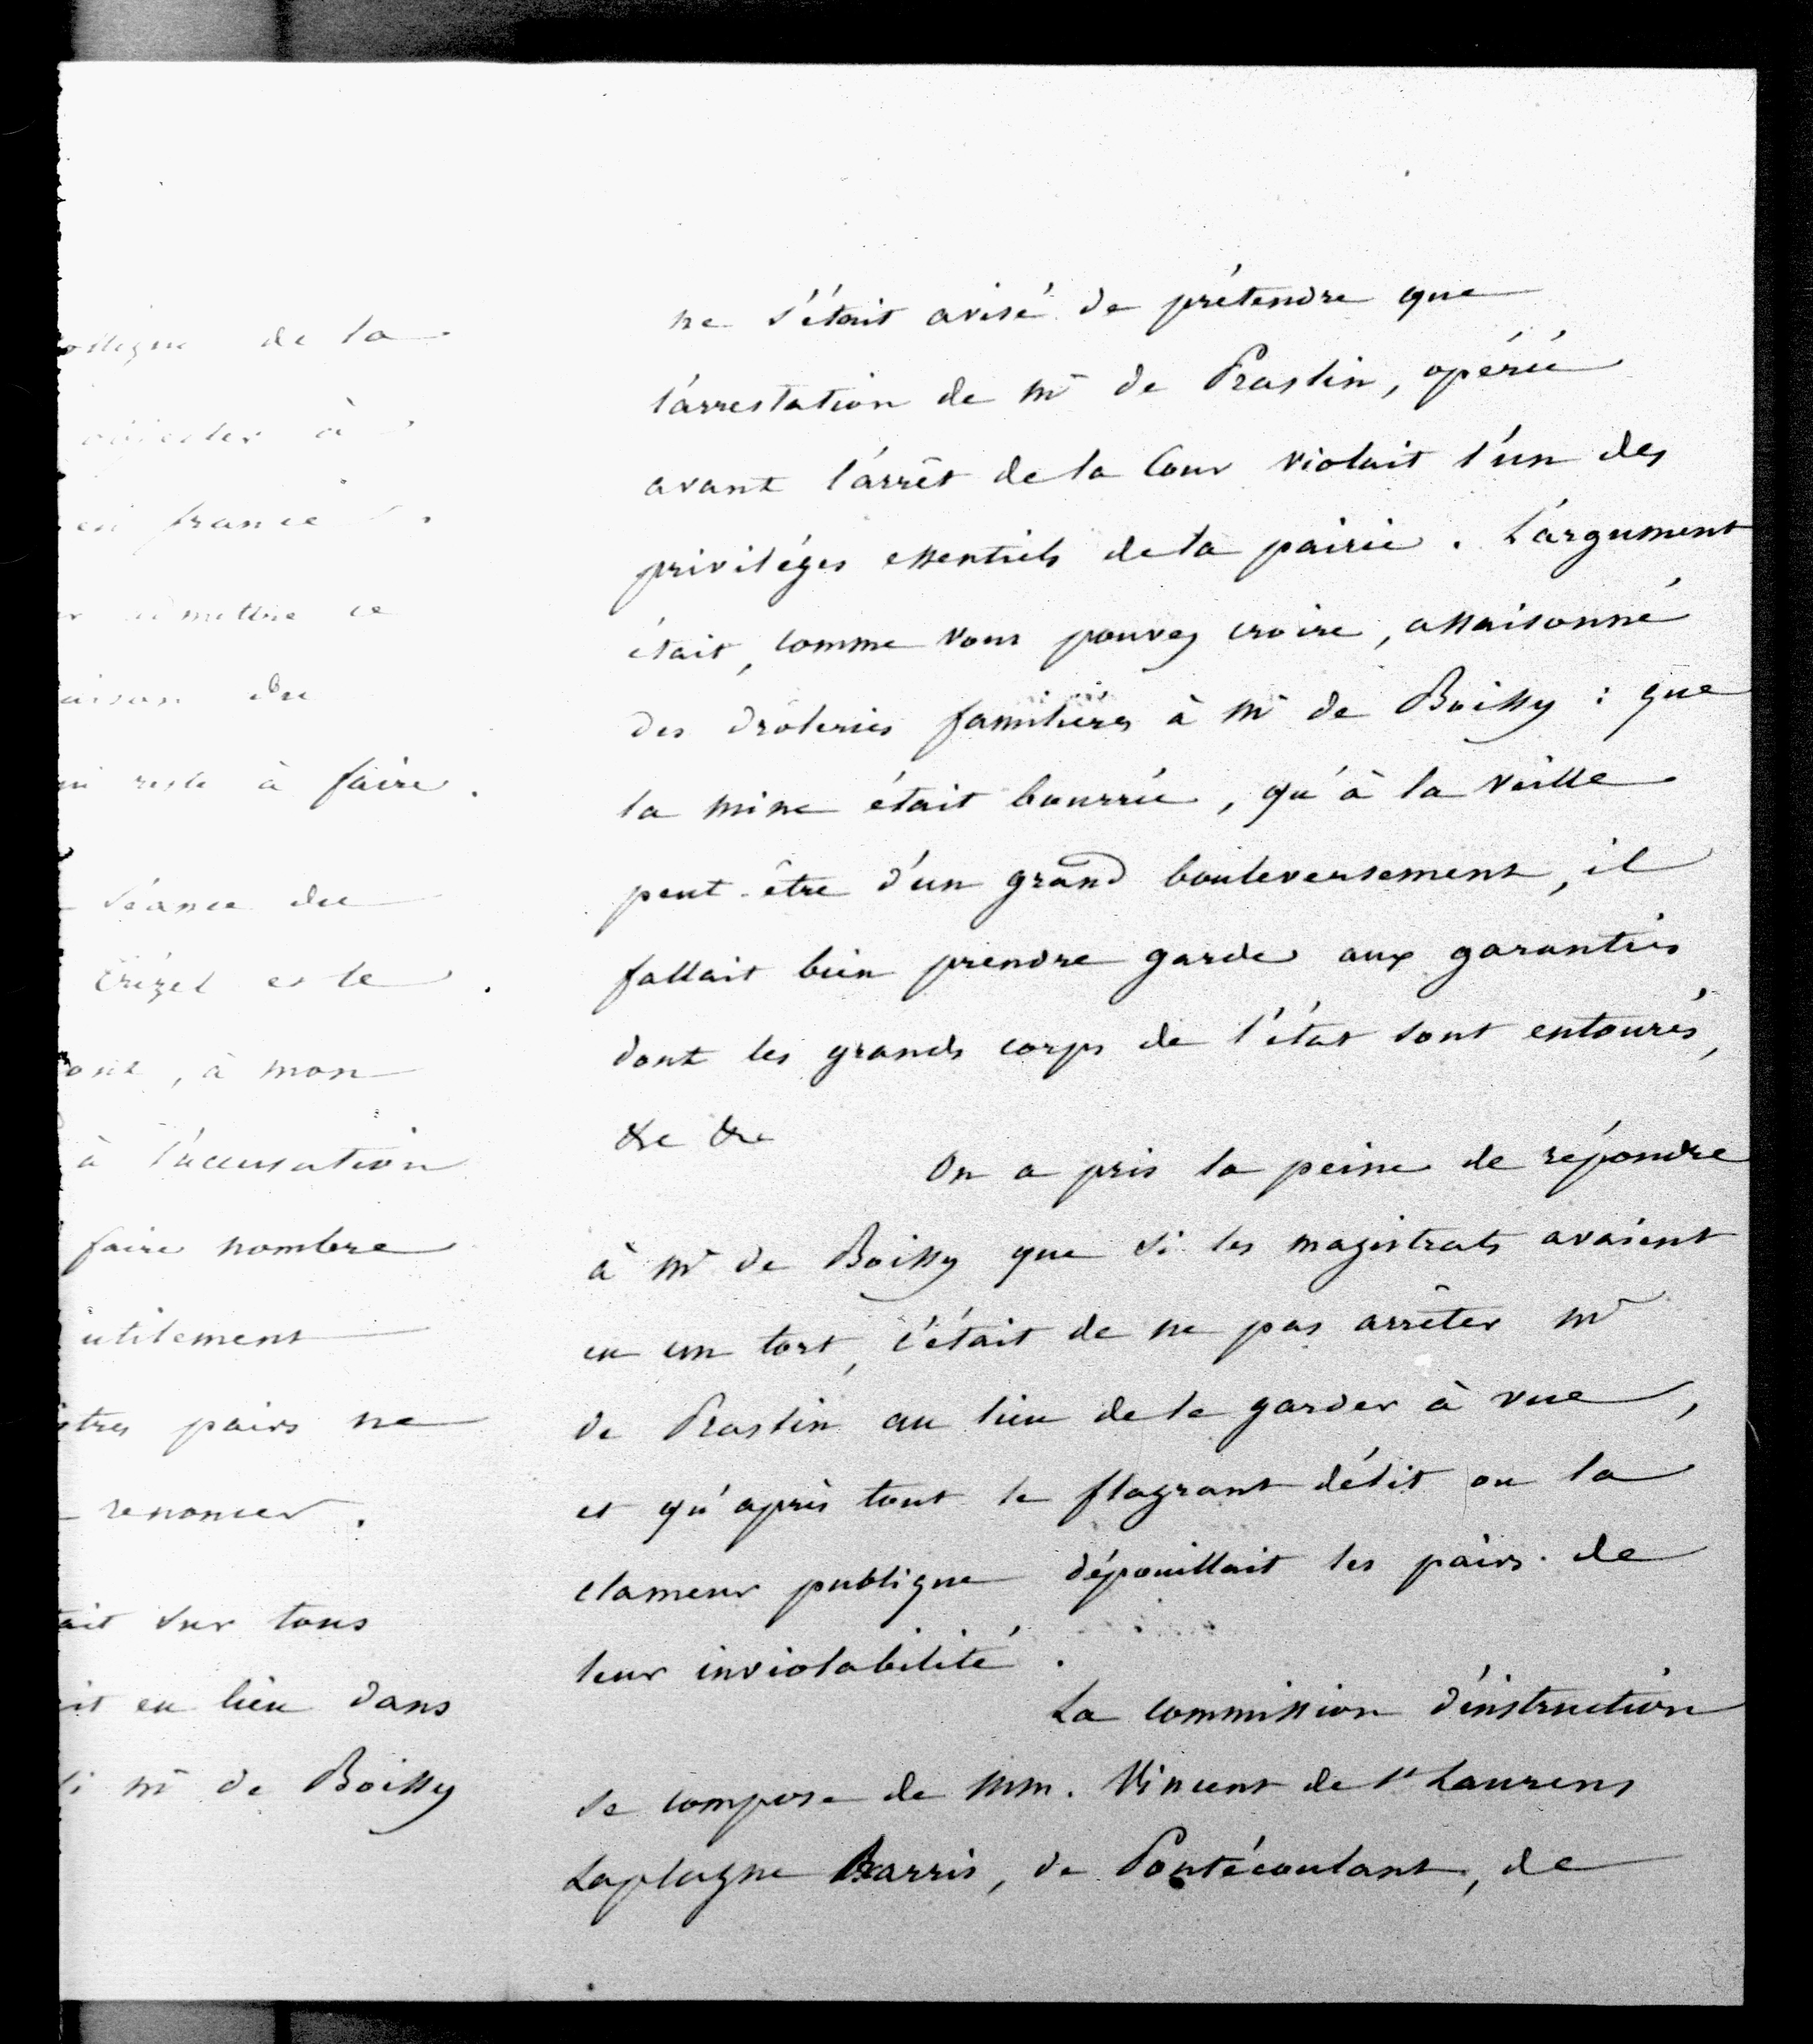 de la
à
en france
mettre ce
aison du
reste à faire.
séance du
Trézel et le
, à mon
à l'accusation
faire nombre
utilement
pairs ne
renoncer.
ait sur tous
eu lieu dans
si Mr de Boissy
ne s'était avisé de prétendre que
l'arrestation de Mr de Praslin, opérée
avant l'arrêt de la Cour violait l'un des
priviléges essentiels de la pairie. L'argument
était, comme vous pouvez croire, assaisonné
des drôleries familières à Mr de Boissy : que
la mine était bourrée, qu'à la veille
peut-être d'un grand bouleversement, il
fallait bien prendre garde aux garanties
dont les grands corps de l'état sont entourés,
&c &c
On a pris la peine de répondre
à Mr de Boissy que si les magistrats avaient
eu un tort, c'était de ne pas arrêter Mr
de Praslin au lieu de le garder à vue,
et qu'après tout le flagrant délit ou la
clameur publique dépouillait les pairs de
leur inviolabilité.
La commission d'instruction
se compose de MM. Vincent de St Laurens
Laplagne Barris, de Pontécoulant, de